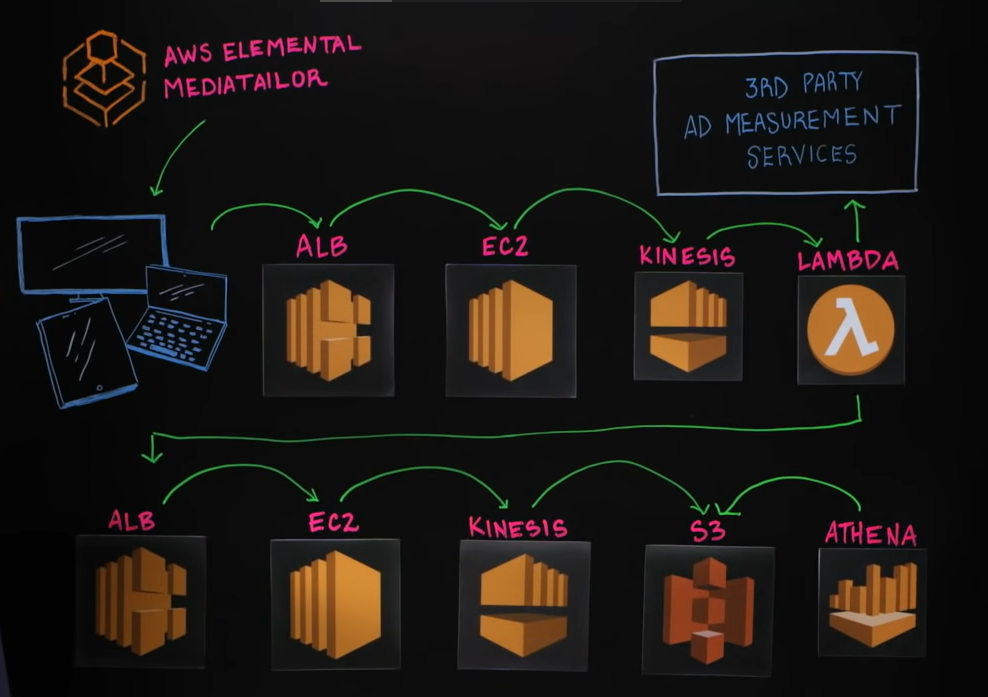 AWS ELEMENTAL
MEDIATAILOR
3RD PARTY
AD MEASUREMENT
SERVICES
ALB
EC2
KINESIS
LAMBDA
ALB
EC2
KINESIS
S3
ATHENA